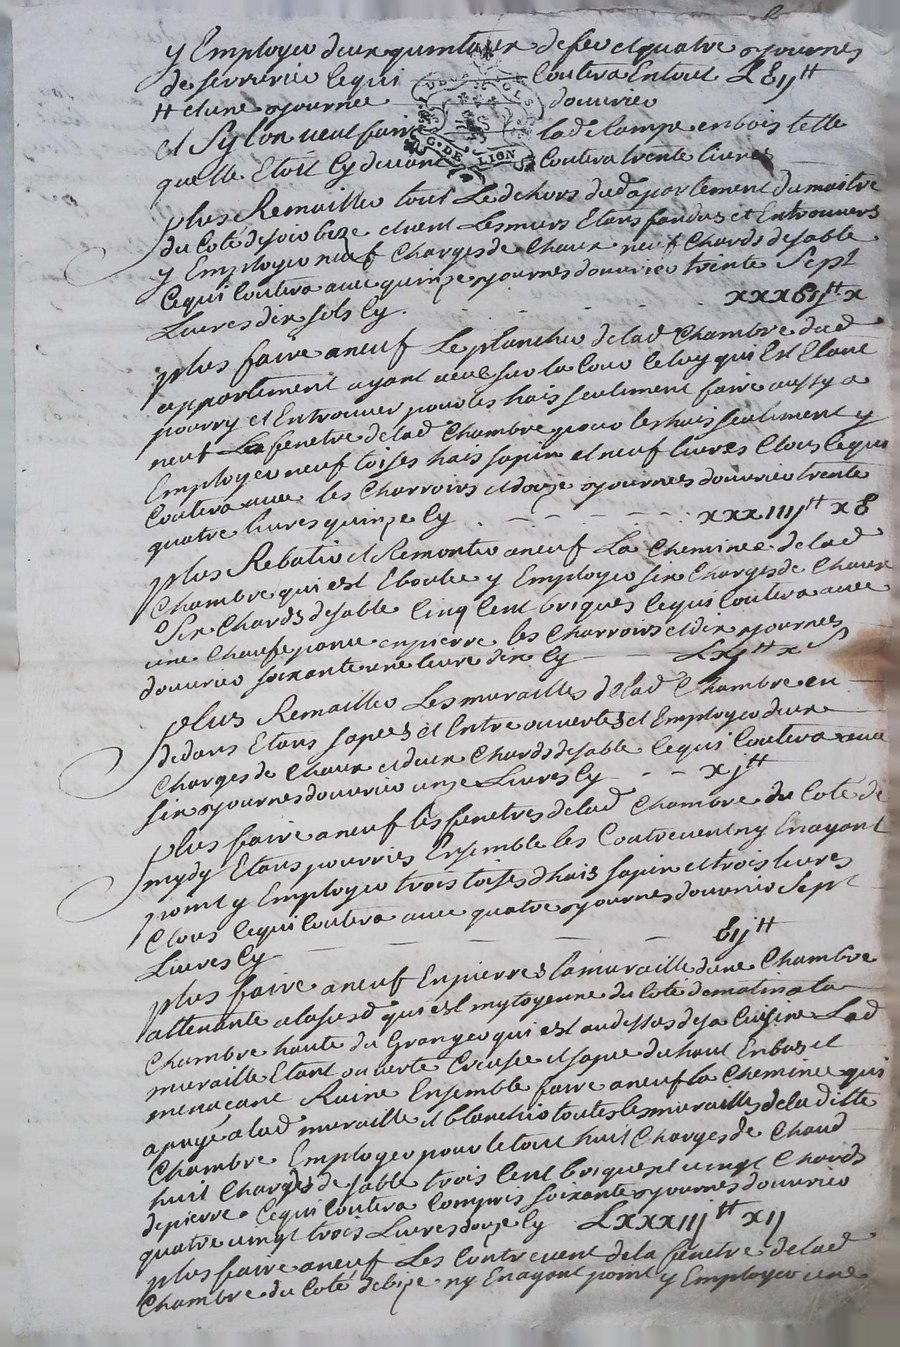 y Employer deux quintaux de fer et quatre journes
de serrurier Ce qui Coutera En tout L Eij ₶
₶ et une journee douvrier
et Sy lon veut faire lad. lampe en bois telle
quelle Etoit Cy devant Coutera trente livres
DEUX SOLS
G. DE LION
plus Remailler tout Le dehors dud apartement du maitre
du Coté de soir bize et vent Les murs Etans fandus et Entrouvers
y Employer neuf Charges de Chaux neuf Chards de sable
Ce qui Coutera avec quinze journes douvrier trente Sept
Livres dix sols Cy xxxvij ₶ x
plus faire a neuf Le plancher de lad Chambre dud
appartement ayant veue sur la Cour Celuy qui Est Etant
pourry et Entrouver pour les hais seulement faire aussy a
neuf La fenetre de lad Chambre pour les hais seulement y
Employer neuf toises hais sapin et neuf livres Clous Ce qui
Coutera avec les Charroirs et douze journees douvrier trente
quatre livres quinze Cy xxxiiij ₶ x E
plus Rebatir et Remonter a neuf La Cheminée de lad
Chambre qui est Eboulee y Employer six Charges de Chaux
Six Chards de sable Cinq Cent briques Ce qui Coutera avec
une Chaufepanse en pierre les Charroirs et dix journees
douvrier soixante une livre dix Cy Lxj ₶ x s
plus Remailler Les murailles de lad Chambre en
dedans Etans sapees et Entre ouvertes et Employer deux
Charges de Chaux et deux Chards de sable Ce qui Coutera avec
six journes douvrier unze Livres Cy xj ₶
plus faire a neuf les fenetres de lad Chambre du Coté de
mydy Etans pourries Ensemble les Contrevent ny Enayant
point y Employer trois toises dhais sapin et trois livres
Clous Ce qui Coutera avec quatre journes douvrier Sept
Livres Cy Eij ₶
plus faire a neuf En pierres la muraille dune Chambre
attenante a la susd qui est mytoyenne du Coté de matin a la
Chambre haute du Granger qui est au dessus de sa Cuisine Lad
muraille Etant ouverte Creusée et sapee du haut En bas et
menacant Ruine Ensemble faire a neuf la Cheminee qui
apuyé a lad muraille et blanchir toutes les murailles de la ditte
Chambre Employer pour le tout huit Charges de Chaud
huit Charges de sable trois Cent briques et vingt Chards
de pierre Ce qui Coutera Compris soixante journes douvrier
quatre vingt trois Livres douze Cy Lxxxiij ₶ xij
plus faire a neuf Les Contrevent de la fenetre de lad
Chambre du Coté de bize ny Enayant point y Employer une